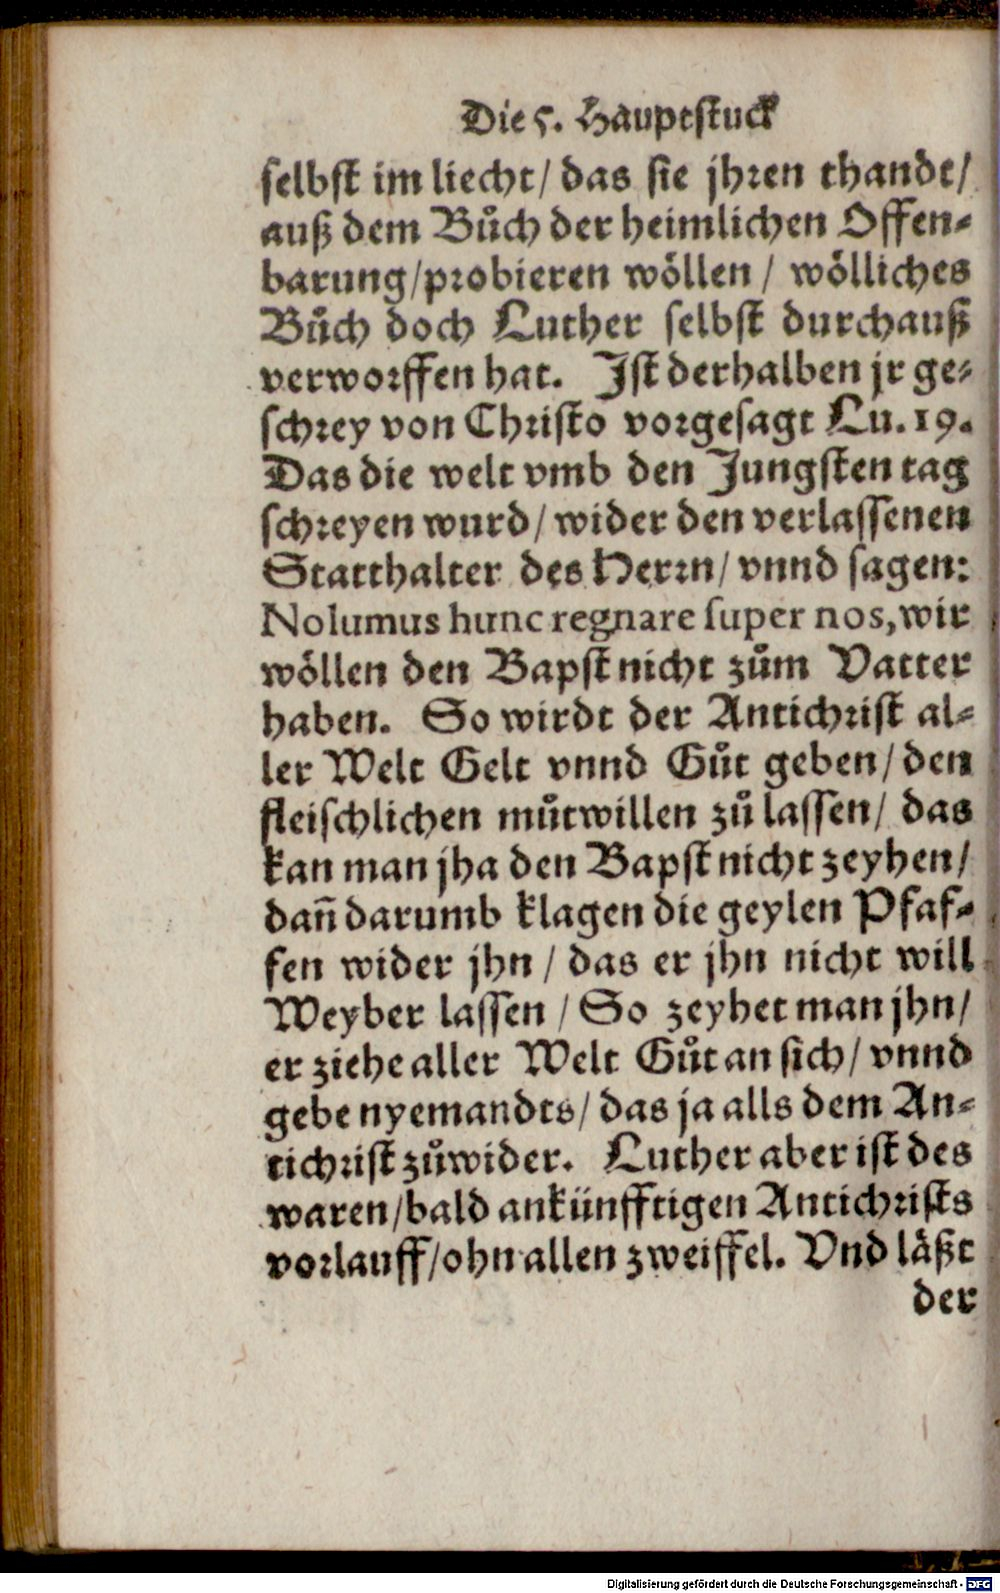 Die 5. Hauptstuck
selbst im liecht/ das sie jhren thandt/
auß dem Bůch der heimlichen Offen-
barung/probieren wöllen / wölliches
Bůch doch Luther selbst durchauß
verworffen hat. Ist derhalben jr ge-
schrey von Christo vorgesagt Lu. 19.
Das die welt vmb den Jungsten tag
schreyen wurd/ wider den verlassenen
Statthalter des Herrn/ vnnd sagen:
Nolumus hunc regnare super nos, wir
wöllen den Bapst nicht zům Vatter
haben. So wirdt der Antichrist al-
ler Welt Gelt vnnd Gůt geben/ den
fleischlichen můtwillen zů lassen/ das
kan man jha den Bapst nicht zeyhen/
dañ darumb klagen die geylen Pfaf-
fen wider jhn / das er jhn nicht will
Weyber lassen / So zeyhet man jhn/
er ziehe aller Welt Gůt an sich/ vnnd
gebe nyemandts/ das ja alls dem An-
tichrist zůwider. Luther aber ist des
waren/bald ankünfftigen Antichrists
vorlauff/ohn allen zweiffel. Vnd läßt
der
Digitalisierung gefördert durch die Deutsche Forschungsgemeinschaft - DFG